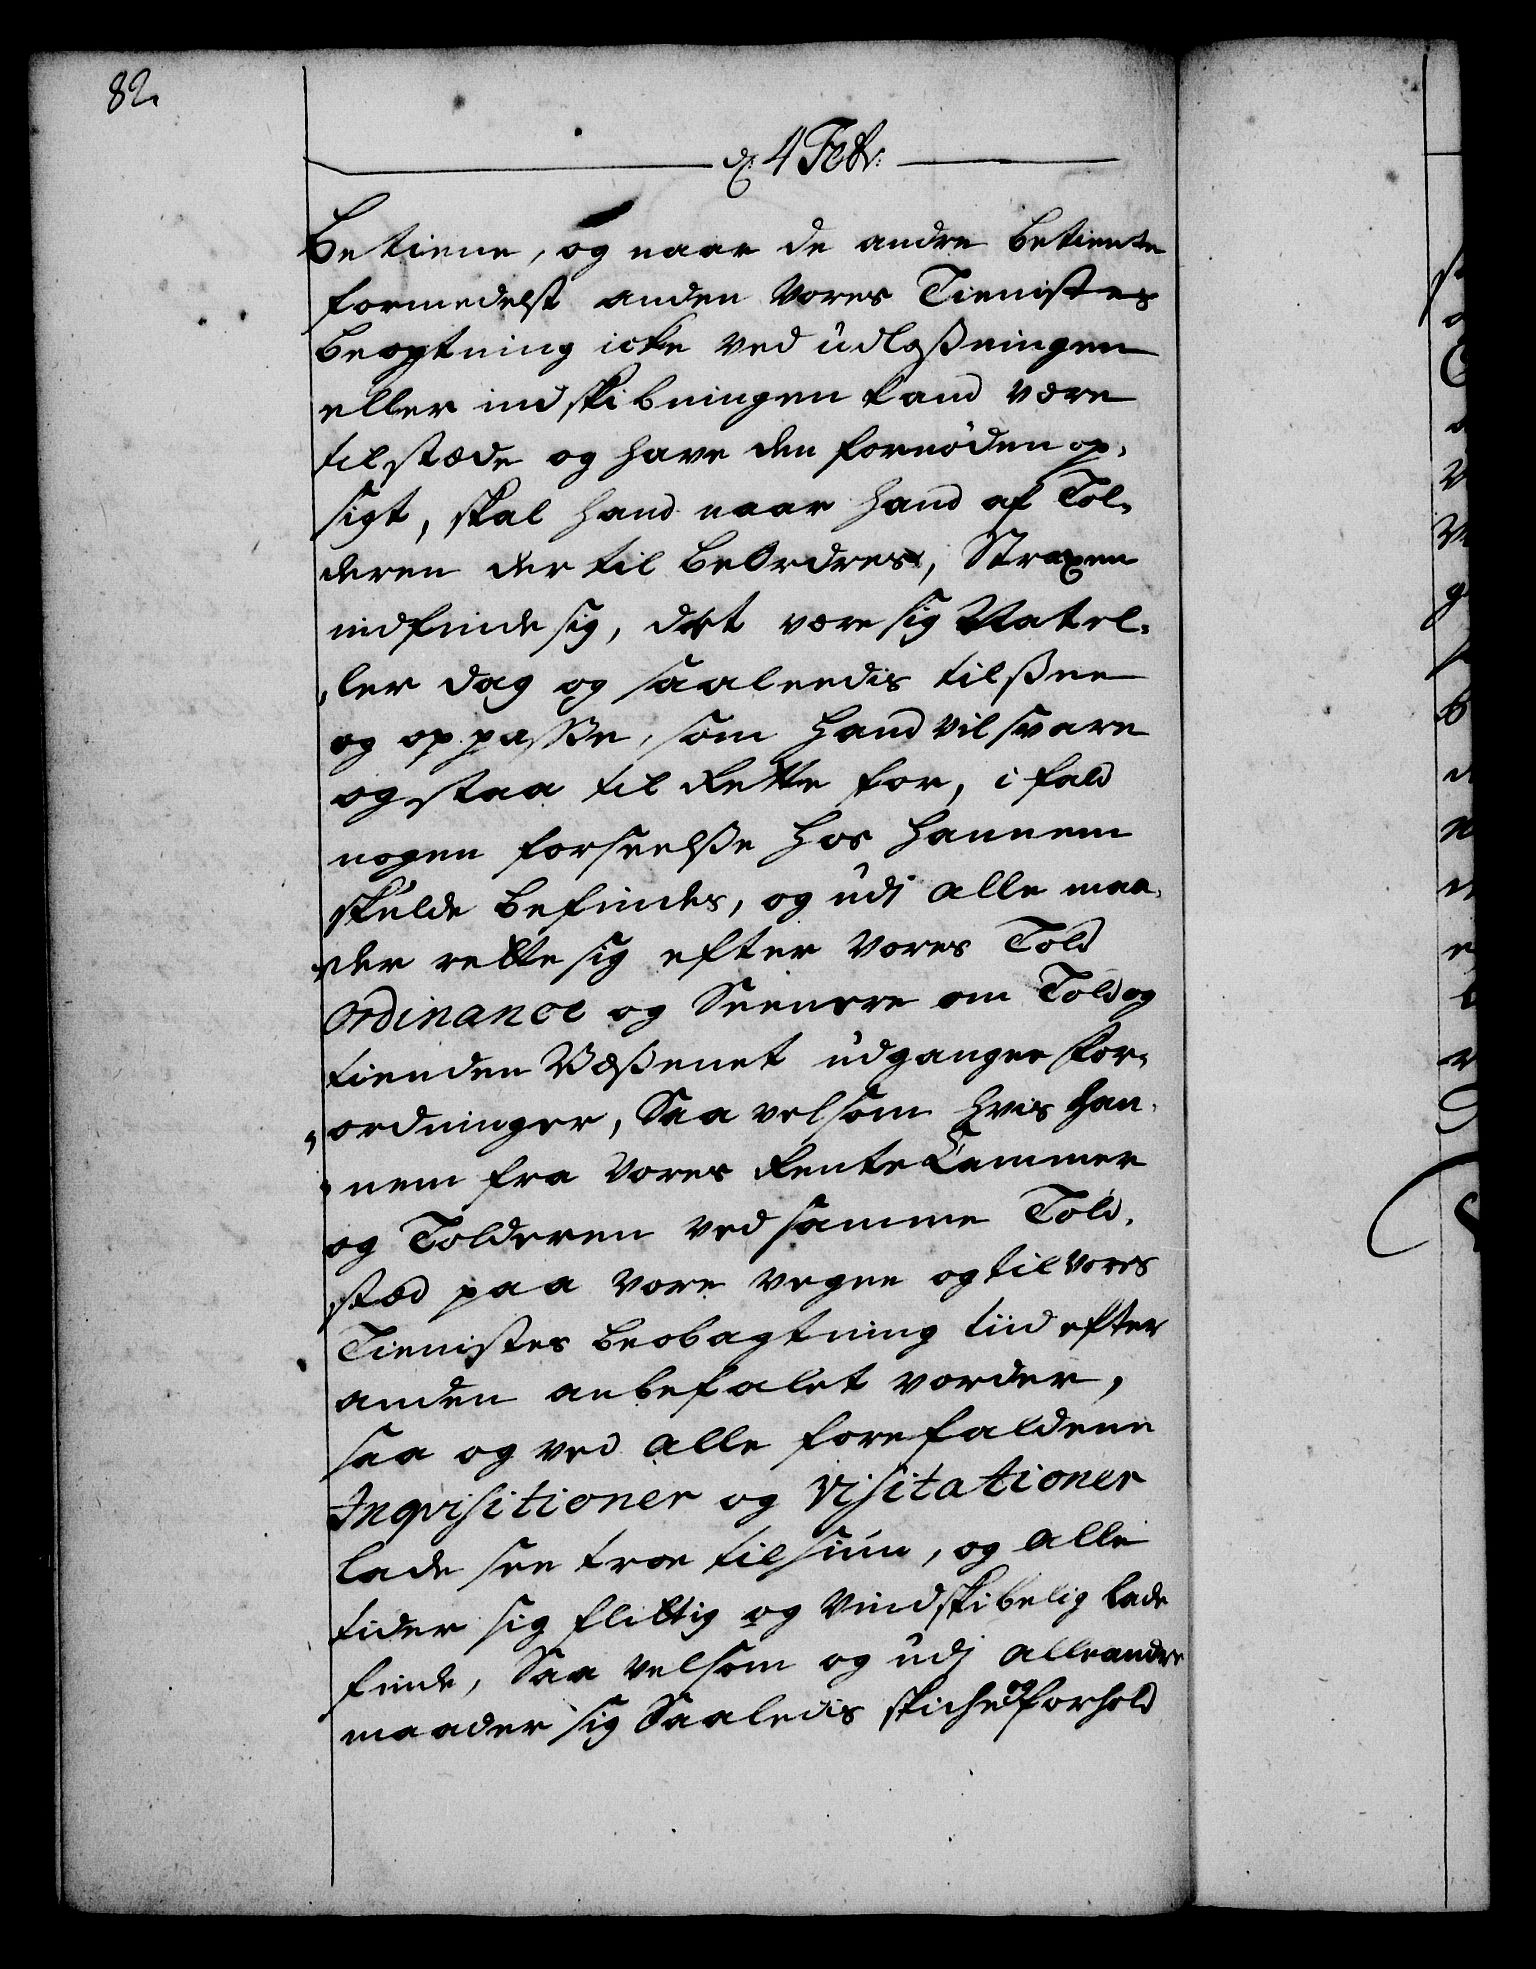 82.
d: 4 Febr:
Betiene, og naar de andre Betiente
formedelst anden Vores Tienistes
beagtning icke ved udloßningen
eller indskibningen kand være
tilstæde og have den fornöden op-
sigt, skal hand naar hand af Tol-
deren der til beordres, Straxen
indfinde sig, det være sig Nat el-
ler dag og saaleedis tilßee
og oppaßße, som hand vil svare
og staa til Rette for, i fald
nogen forseelße hos hannem
skulde befindes, og udj alle maa-
der rette sig efter Vores Told
Ordinance og Seenere om Told og
tienden Væßenet udgangne for-
ordninger, Saa velsom hvis han-
nem fra Vores RenteCammer
og Tolderen ved samme Told-
stæd paa Vore vegne og til Vores
Tienistes beobagtning tiid efter
anden anbefalet vorder,
saa og ved alle forefaldene
Inqvisitioner og Visitationer
lade see troe tilsiun, og alle
tider sig flittig og Vindskibelig lade
finde, Saa velsom og udj alle andre
maader sig Saaledis skicke og forhold